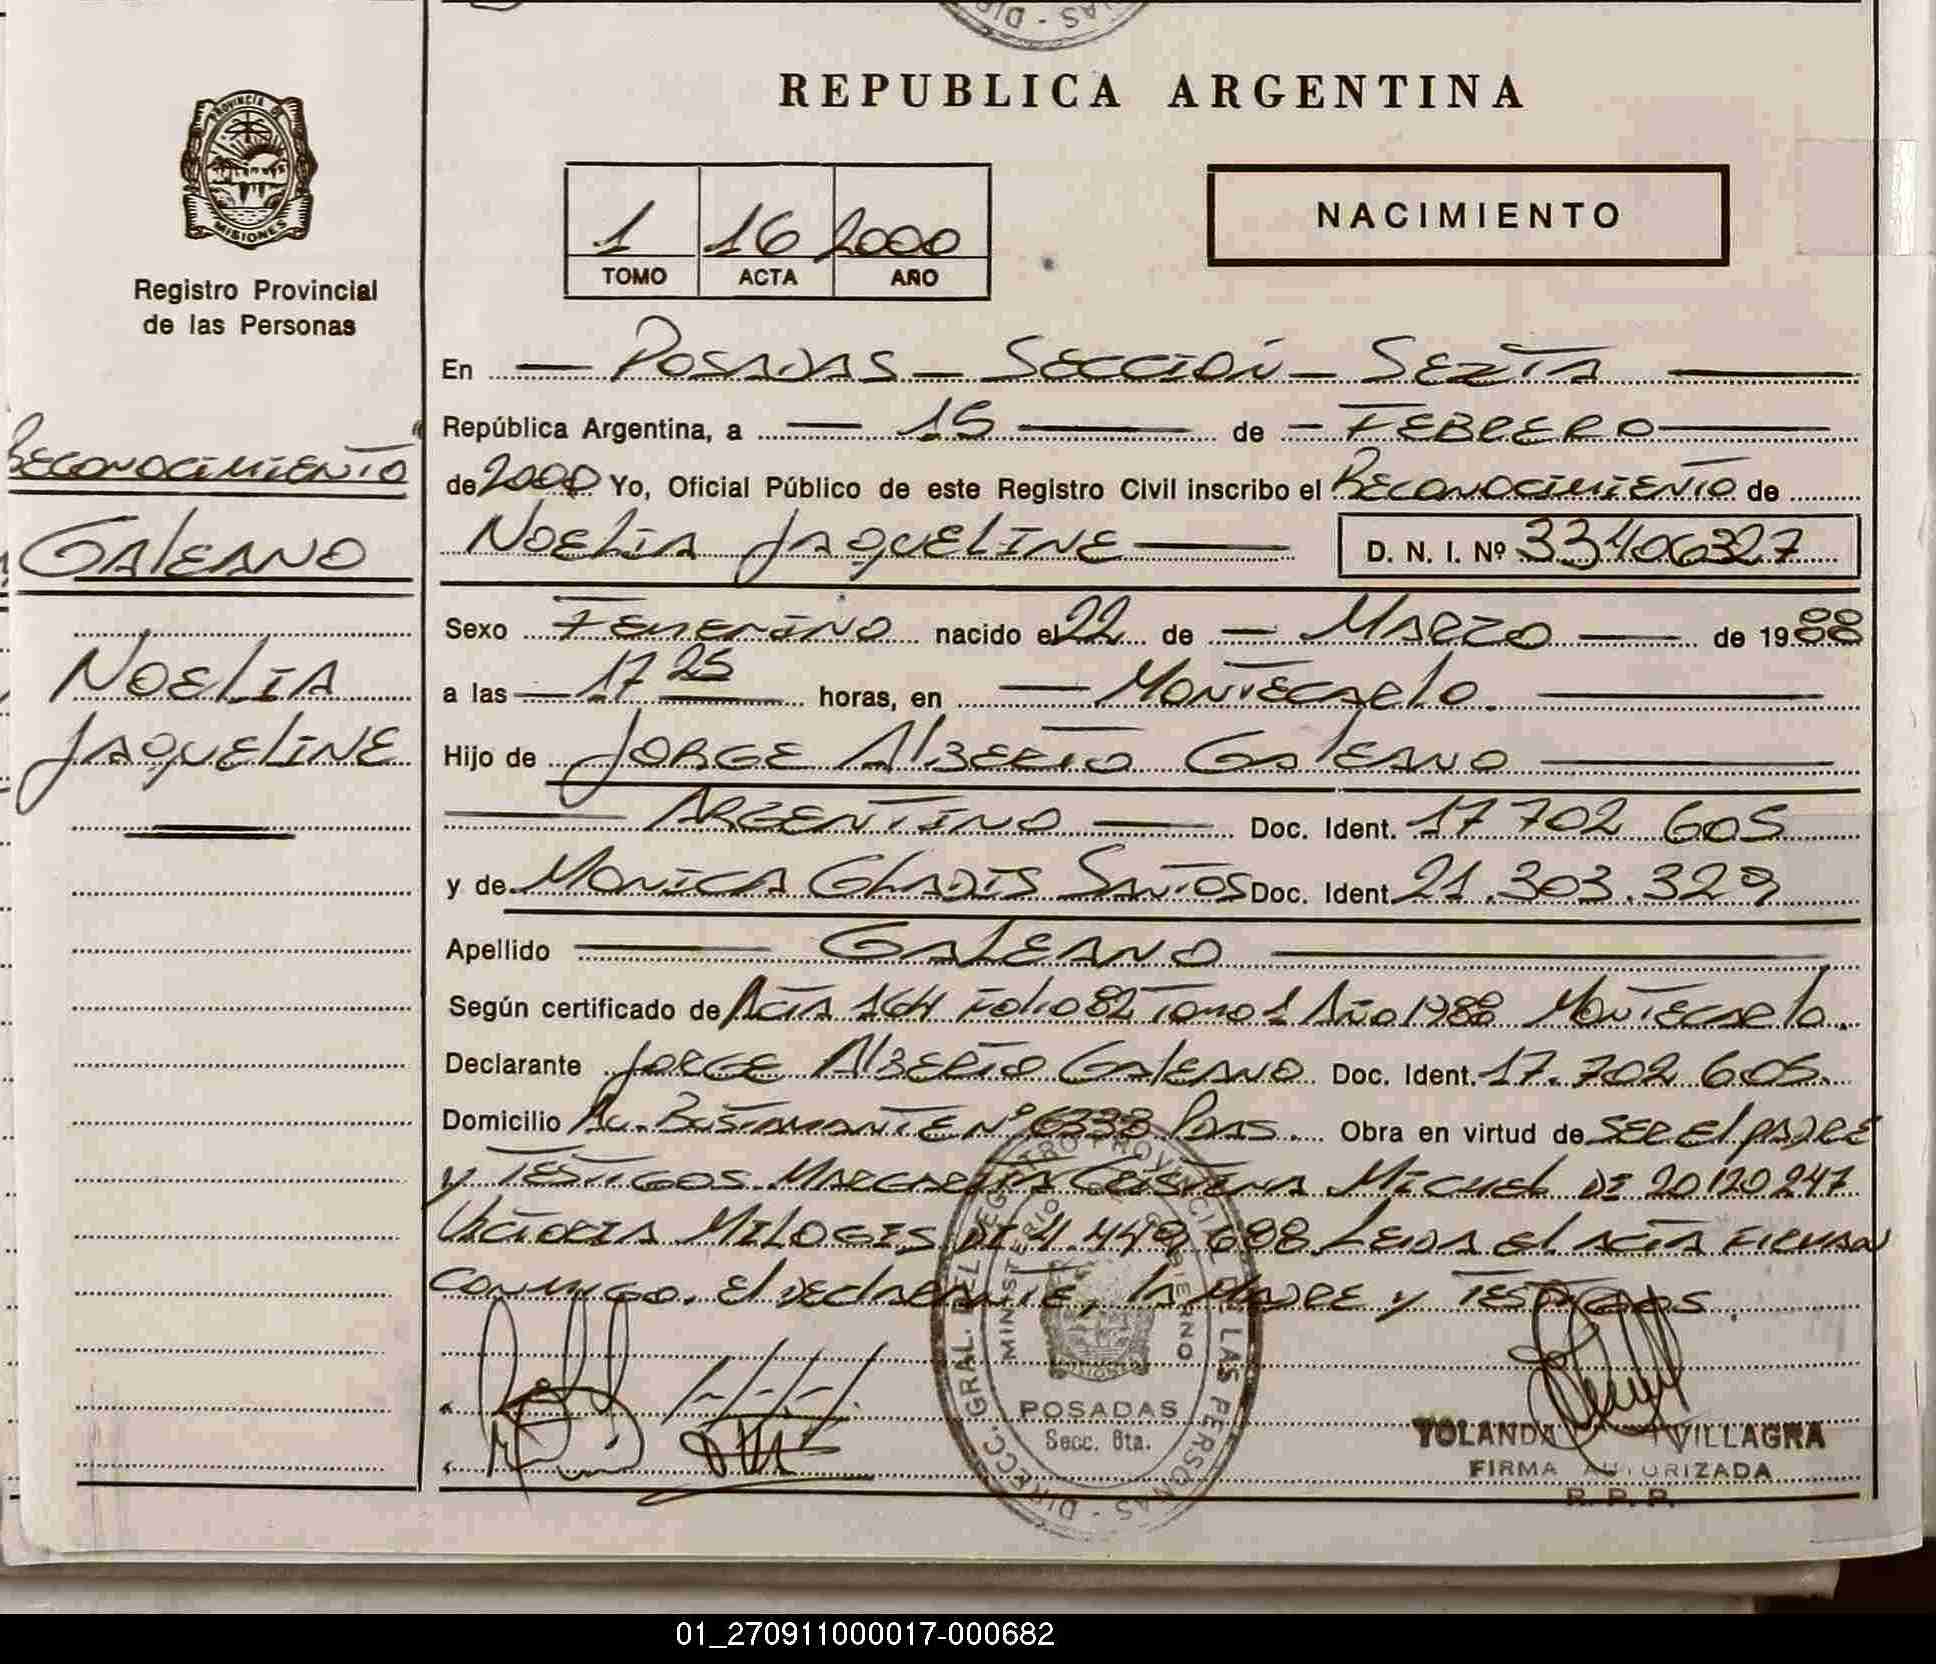 REPUBLICA ARGENTINA
PROVINCIA DE
MISIONES
Registro Provincial
de las Personas
1 16 2000
TOMO ACTA AÑO
NACIMIENTO
En Posadas - Sección - Sexta
República Argentina, a 15 de Febrero
de 2000 Yo, Oficial Público de este Registro Civil inscribo el Reconocimiento de
Noelia Jaqueline D. N. I. Nº 33406327
Reconocimiento
Galeano
Noelia
Jaqueline
Sexo Femenino nacido el 22 de Marzo de 1988
a las 17 25 horas, en Montecarlo.
Hijo de Jorge Alberto Galeano
Argentino Doc. Ident. 17 702 605
y de Monica Gladis Santos Doc. Ident. 21.303.329
Apellido Galeano
Según certificado de Acta 164 Folio 82 Tomo 1 Año 1988 Montecarlo.
Declarante Jorge Alberto Galeano Doc. Ident. 17.702 605.
Domicilio Av. Bustamante Nº 6338 Pdas. Obra en virtud de ser el padre
y Testigos Margarita Cristina Miguel DI 20120247
Victoria DI 4.449 698 Leida el acta firman
conmigo. El declarante, la Madre y Testigos.
DIRECC. GRAL. DEL REGISTRO PROVINCIAL DE LAS PERSONAS
MINISTERIO GOBIERNO
POSADAS
Secc. 6ta.
YOLANDA VILLAGRA
FIRMA AUTORIZADA
R. P. P.
01_270911000017-000682